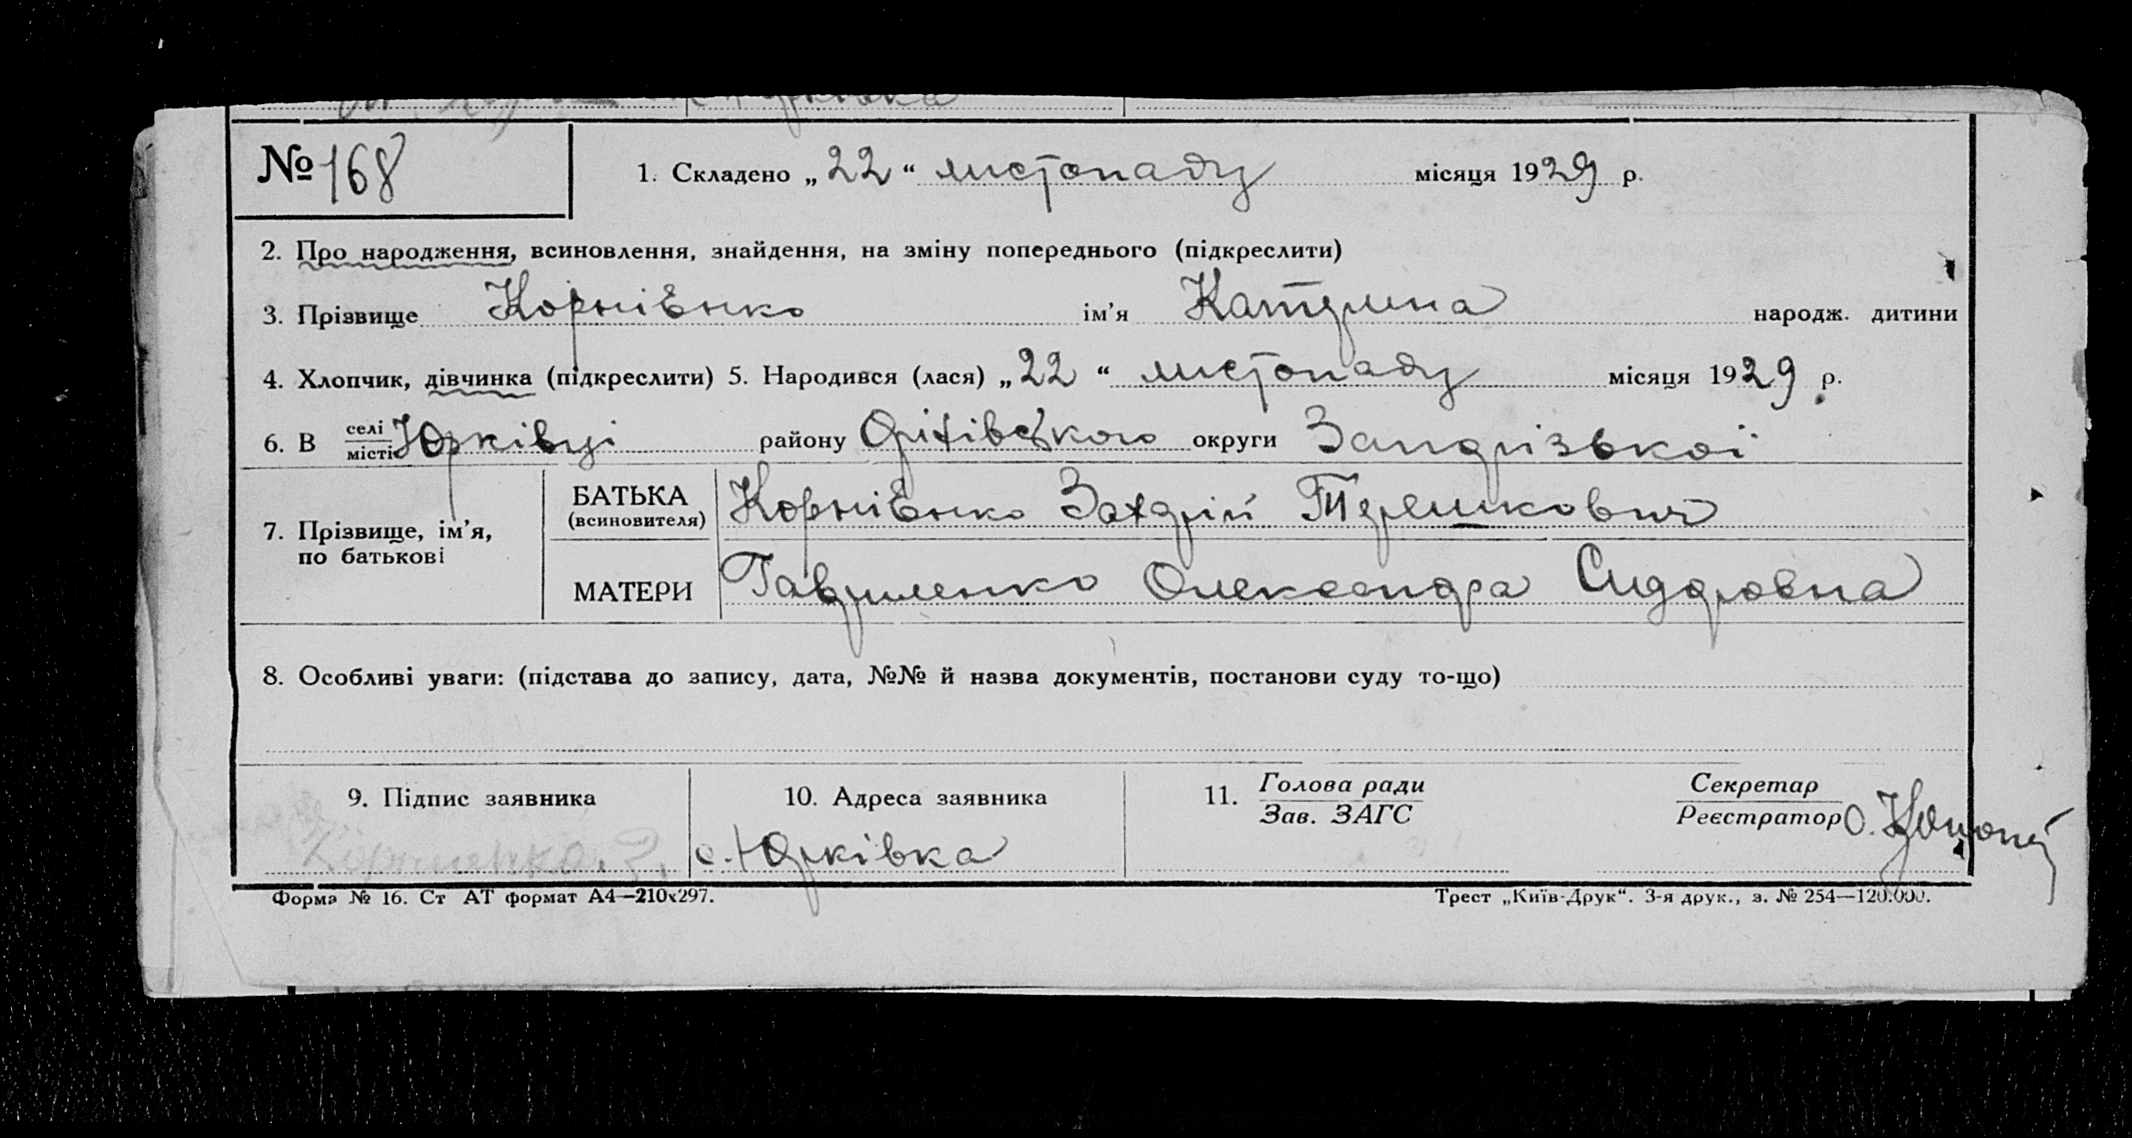 Юрківка
№ 168
1. Складено „22“ листопаду місяця 1929 р.
2. Про народження, всиновлення, знайдення, на зміну попереднього (підкреслити)
3. Прізвище Корнієнко ім’я Катерина народж. дитини
4. Хлопчик, дівчинка (підкреслити) 5. Народився (лася) „22“ листопаду місяця 1929 р.
6. В селі Юрківці району Оріхівського округи Запорізької
місті
7. Прізвище, ім’я, по батькові
БАТЬКА (всиновителя) Корнієнко Захарій Терешкович
МАТЕРИ Гавриленко Олександра Сидоровна
8. Особливі уваги: (підстава до запису, дата, №№ й назва документів, постанови суду то-що)
9. Підпис заявника
Корниенко. З.
10. Адреса заявника
с. Юрківка
11. Голова ради
Зав. ЗАГС
Секретар
Реєстратор О.
Форма № 16. Ст АТ формат А4—210х297.
Трест „Київ-Друк“. 3-я друк., з. № 254—120.000.